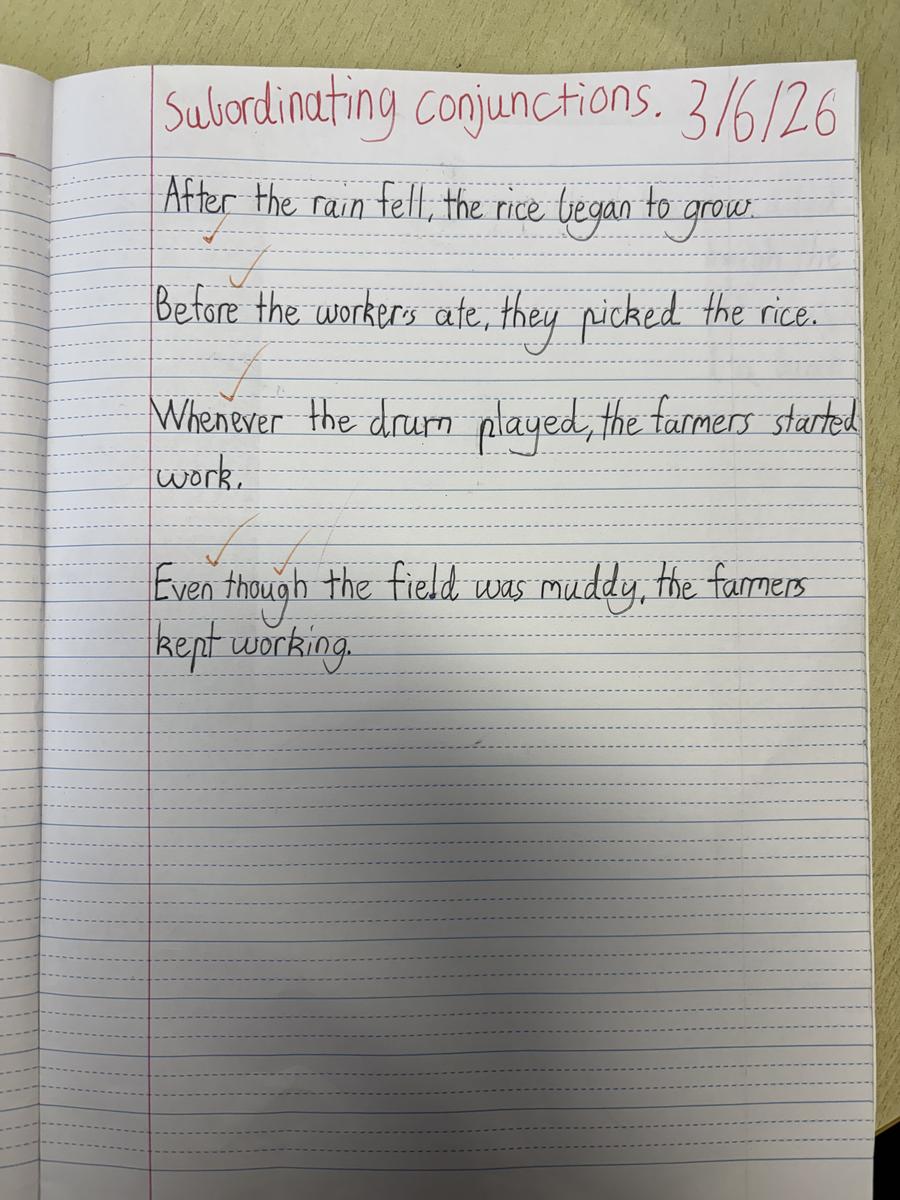 Subordinating conjunctions. 3/6/26
After the rain fell, the rice began to grow.
Before the workers ate, they picked the rice.
Whenever the drum played, the farmers started
work.
Even though the field was muddy, the farmers
kept working.